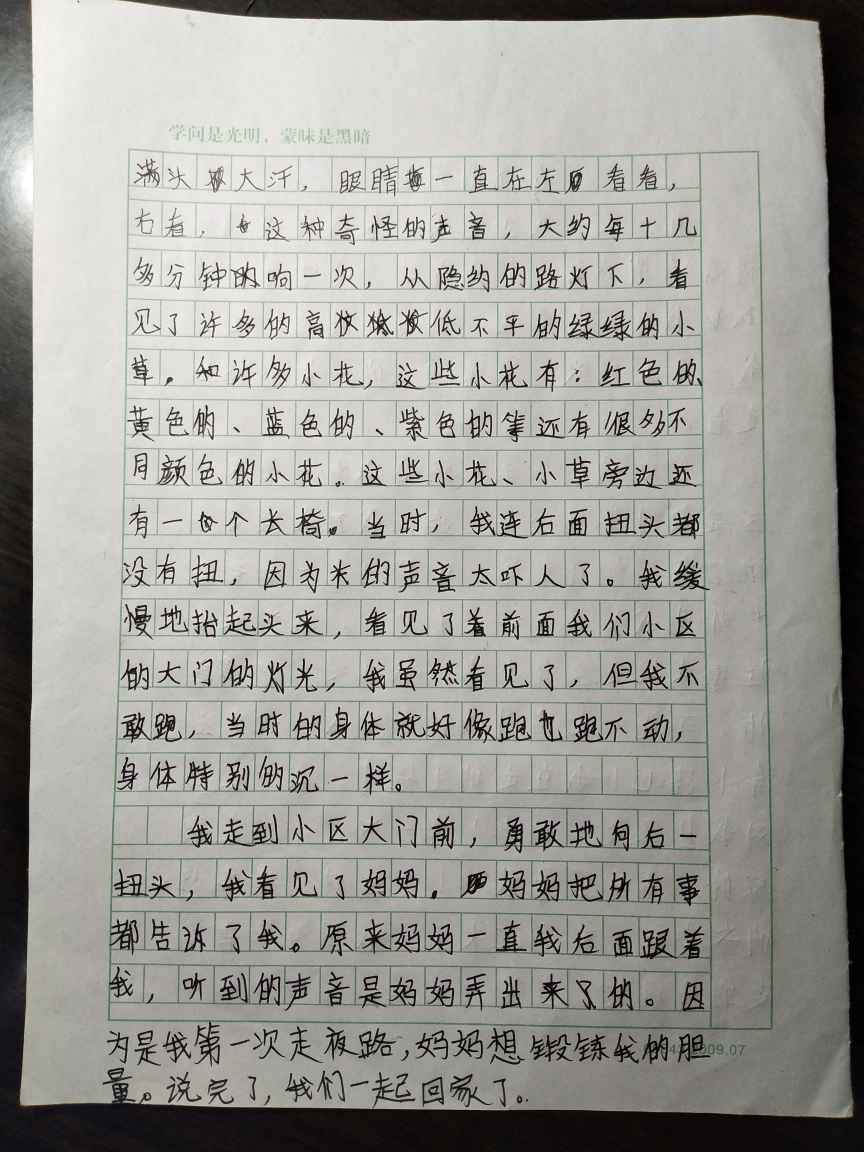 学问是光明，蒙昧是黑暗
满头大汗，眼睛一直在左看看，
右看，这种奇怪的声音，大约每十几
多分钟响一次，从隐约的路灯下，看
见了许多的高低不平的绿绿的小
草。和许多小花，这些小花有：红色的、
黄色的、蓝色的、紫色的等还有很多不
同颜色的小花。这些小花、小草旁边还
有一个长椅。当时，我连后面扭头都
没有扭，因为来的声音太吓人了。我缓
慢地抬起头来，看见了着前面我们小区
的大门的灯光，我虽然看见了，但我不
敢跑，当时的身体就好像跑也跑不动，
身体特别的沉一样。
我走到小区大门前，勇敢地向后一
扭头，我看见了妈妈。妈妈把所有事
都告诉了我。原来妈妈一直我后面跟着
我，听到的声音是妈妈弄出来的。因
为是我第一次走夜路，妈妈想锻练我的胆
量。说完了，我们一起回家了。
009.07